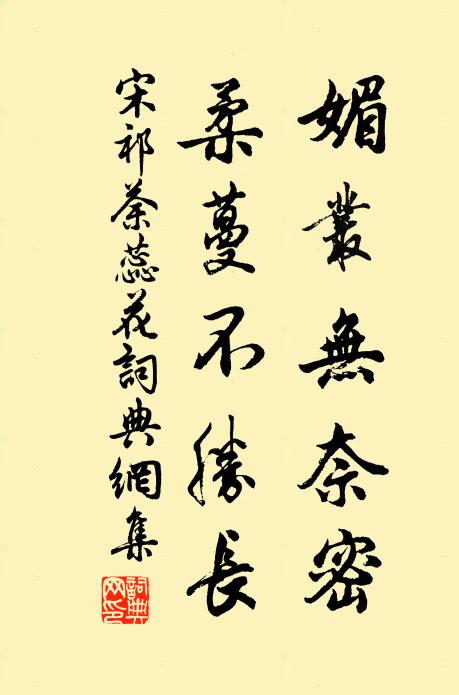 媚叢無奈密
柔蔓不勝長
宋祁荼蕊花詞典網集
詞典網印